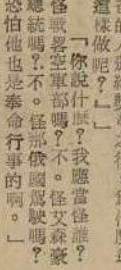 這樣做呢？』」
「你說什麽？我應當怪誰？
怪戰畧空軍部嗎？不。怪艾森豪
總統嗎？不。怪那俄國駕駛嗎？
恐怕他也是奉命行事的啊。」